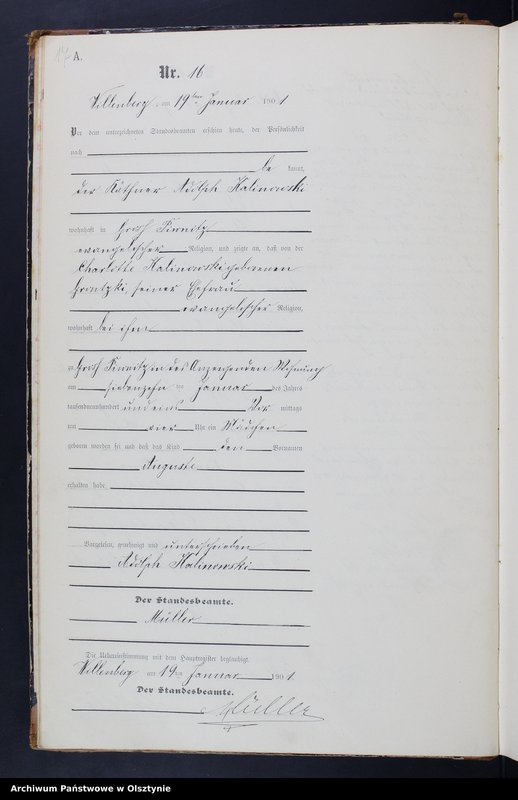 17 A.
Nr. 16
Willenberg, am 19ten Januar 1901
Vor dem unterzeichneten Standesbeamten erschien heute, der Persönlichkeit
nach
be kannt,
der Käthner Adolph Kalinowski
wohnhaft in Groß Piwnitz
evangelischer Religion, und zeigte an, daß von der
Charlotte Kalinowski geborenen
seiner Ehefrau
evangelischer Religion,
wohnhaft bei ihm
zu Groß Piwnitz in des Anzeigenden Wohnung
am siebenzehn ten Januar des Jahres
tausendneunhundert und eins Vor mittags
um vier Uhr ein Mädchen
geboren worden sei und daß das Kind den Vornamen
Auguste
erhalten habe.
Vorgelesen, genehmigt und unterschrieben
Adolph Kalinowski
Der Standesbeamte.
Müller
Die Uebereinstimmung mit dem Hauptregister beglaubigt.
Willenberg am 19ten Januar 1901
Der Standesbeamte.
Müller
Archiwum Państwowe w Olsztynie